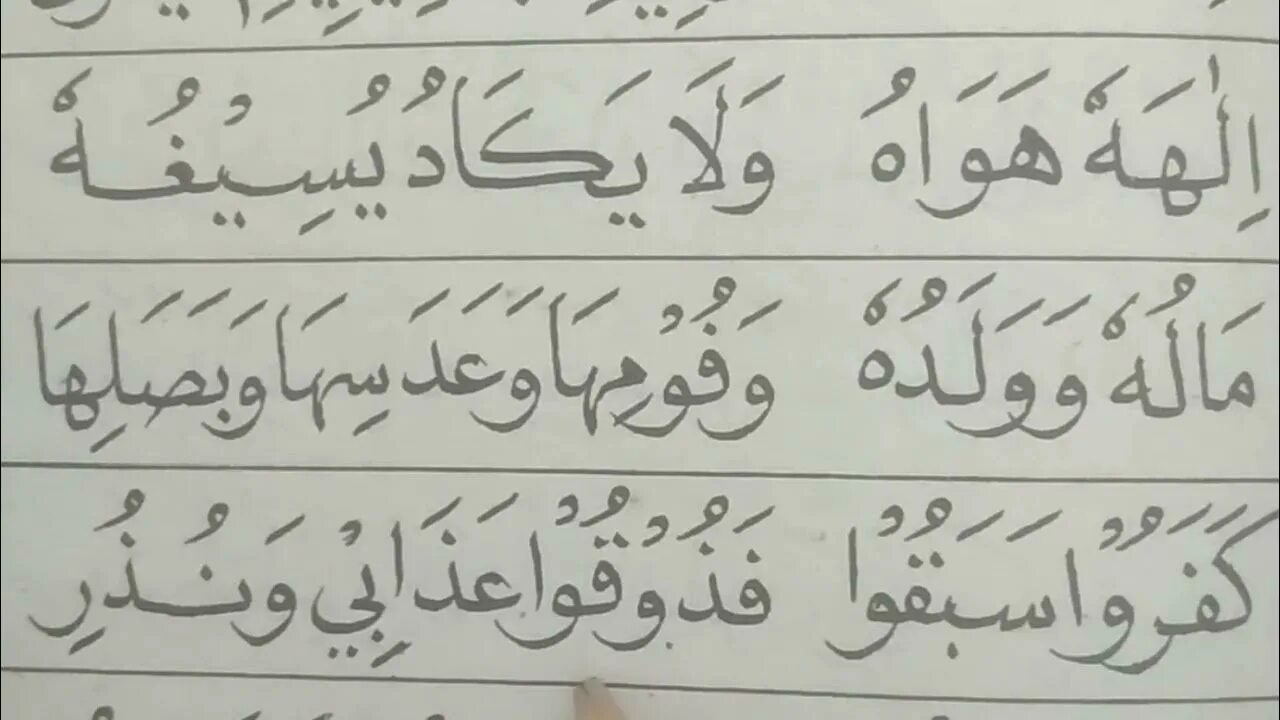 اِلٰهَهٗ هَوَاهُ وَلَا يَكَادُ يُسِيْغُهٗ
مَالُهٗ وَوَلَدُهٗ وَفُوْمِهَا وَعَدَسِهَا وَبَصَلِهَا
كَفَرُوْا سَبَقُوْا فَذُوْقُوْا عَذَابِيْ وَنُذُرِ